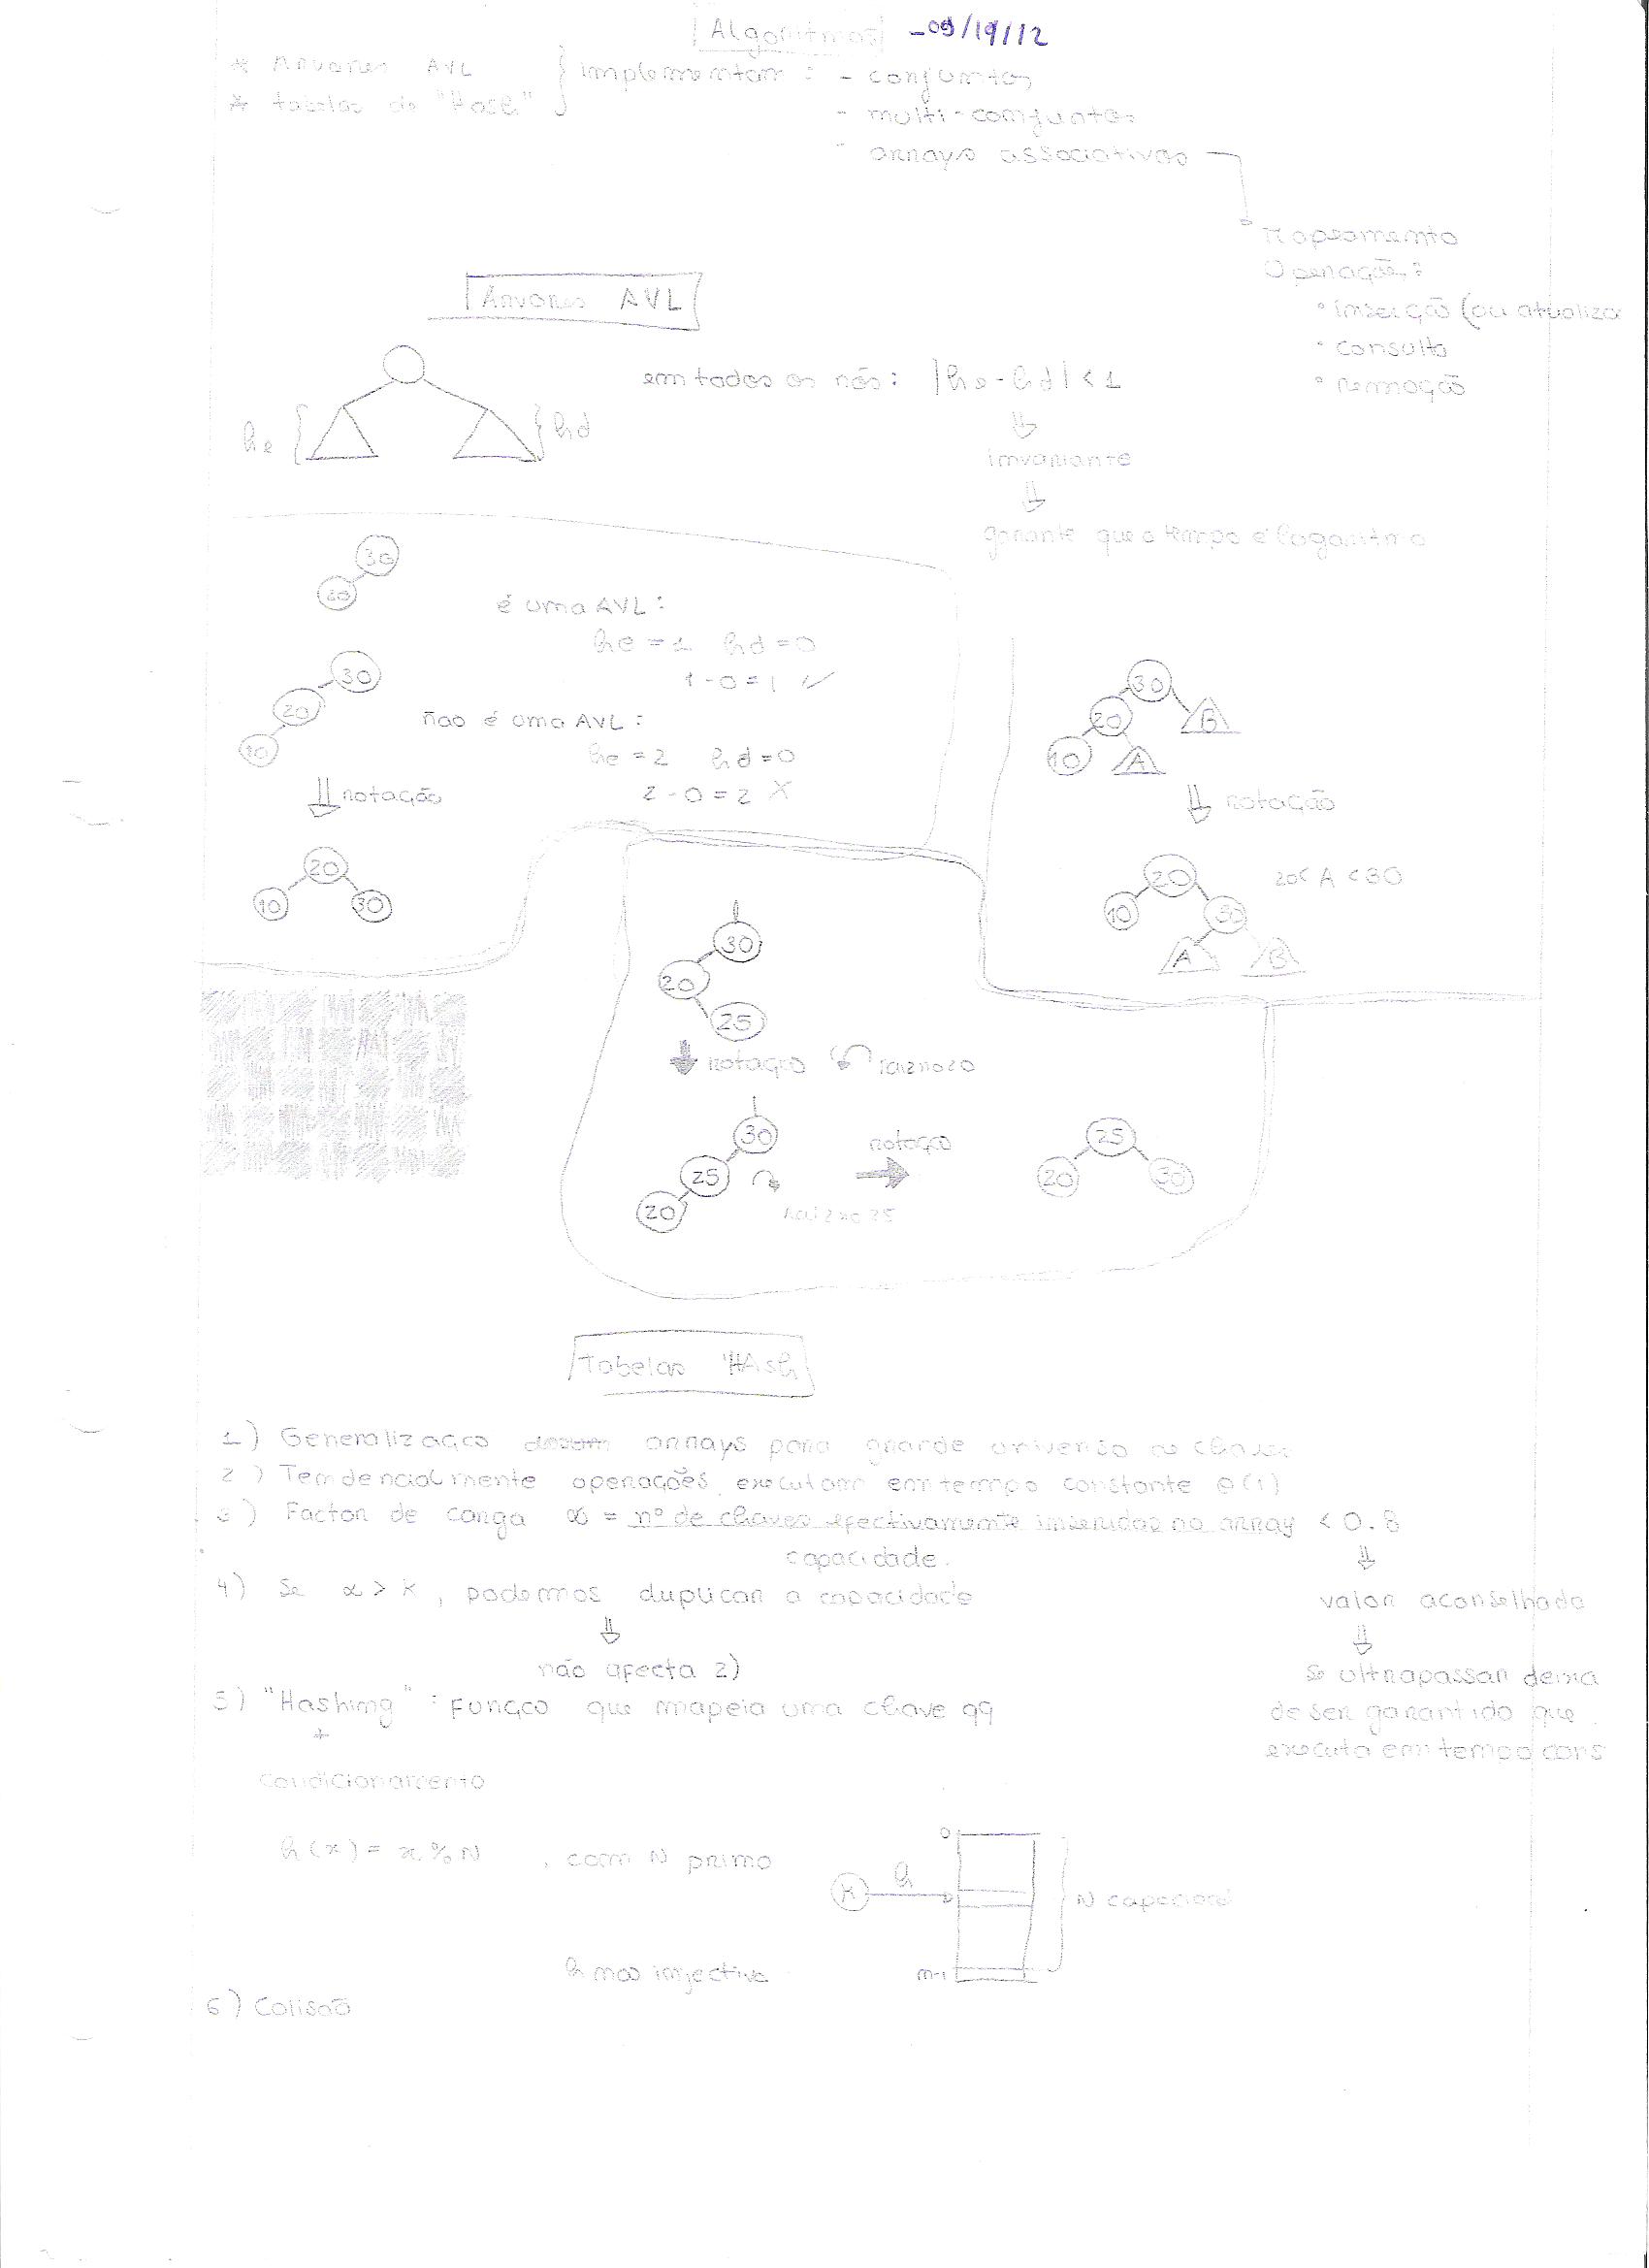 Algoritmos - 09/19/12
* Árvores AVL } implementam : - conjuntos
* tabelas de "Hash"
- multi-conjuntos
- arrays associativos
Mapeamento
Operação:
• inserção (ou atualiza
• consulta
• remoção
Árvores AVL
em todos os nós: |he - hd| < 1
he hd
invariante
garante que o tempo é logaritmo
30
20
é uma AVL:
he = 1 hd = 0
1 - 0 = 1 ✓
30
20
10
não é uma AVL:
he = 2 hd = 0
2 - 0 = 2 X
rotação
20
10 30
30
20 B
10 A
rotação
20 20 < A < 30
10 30
A B
30
20
25
rotação raiz no 20
30
25
20
raiz no 25
rotação
25
20 30
Tabelas Hash
1) Generalização arrays para grande universo de chaves
2) Tendencialmente operações executam em tempo constante θ(1)
3) Factor de carga α = nº de chaves efectivamente inseridas no array < 0.8
capacidade.
valor aconselhado
se ultrapassar deixa
de ser garantido que
executa em tempo cons
4) Se α > k, podemos duplicar a capacidade
não afecta 2)
5) "Hashing" : Função que mapeia uma chave qq
+
condicionamento
h(x) = x % N , com N primo
0
K h
N capacidade
m-1
h não injectiva
6) Colisão